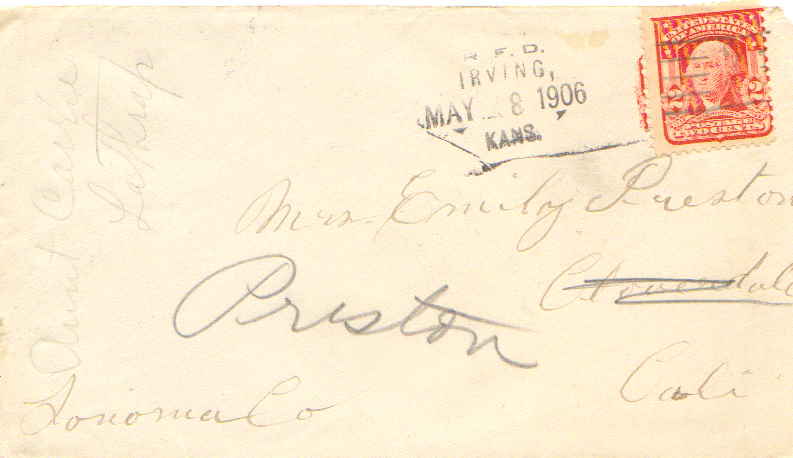 R. F. D.
IRVING,
MAY 8 1906
KANS.
UNITED STATES
OF AMERICA
2 2
POSTAGE
TWO CENTS
Mrs. Emily Preston
Cloverdale
Preston
Cali
Sonoma Co
Aunt Carrie
Lathrap